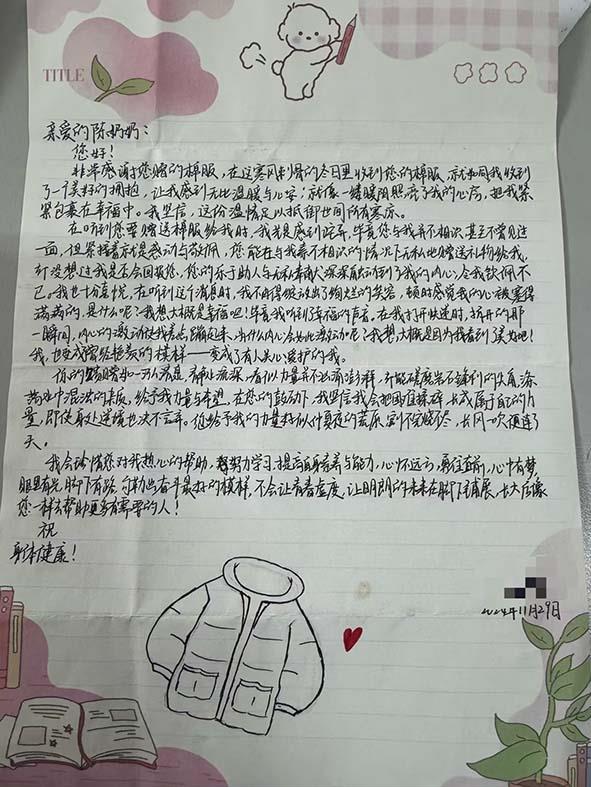 TITLE
亲爱的陈奶奶：
您好！
非常感谢您赠的棉服，在这寒风刺骨的冬日里收到您的棉服，就如同我收到
了一个美好的拥抱，让我感到无比温暖与心安；就像一缕暖阳照亮了我的心房，把我紧
紧包裹在幸福中。我坚信，这份温情足以抵御世间所有寒凉。
在听到您要赠送棉服给我时，我先是感到吃惊，毕竟您与我并不相识甚至不曾见过
一面，但紧接着就是感动与敬佩，您能在与我素不相识的情况下无私地赠送礼物给我，
并没想过我是否会回报您，您的乐于助人与无私奉献深深触动到了我的内心，令我钦佩不
已。我也十分喜悦，在听到这个消息时，我不由得绽放出了绚烂的笑容，顿时感觉我的心被塞得
满满的，是什么呢？我想大概是幸福吧！毕竟我听到幸福的声音。在我打开快递时，拆开的那
一瞬间，内心的激动使我差点蹦起来，为什么内心会如此激动呢？我想大概是因为我看到
我，也变成曾经艳羡的模样——变成了有人关心爱护的我。
您的 静水流深，看似力量并不汹涌澎湃，却能磨岩石锋利的久角，涤
荡 中混浊的杂质，给予我力量与希望，在您的鼓励下，我坚信我会把困难揉碎，长成属于自己的力
量，即使身处逆境也决不言弃。您给予我的力量好似仲夏夜的荒原，割不完烧不尽，长风一吹便连了
天。
我会珍惜您对我热心的帮助，努力学习，提高自身素养与能力，心怀远方，勇往直前，心中有梦，
眼里有光，脚下有路，勾勒出奋斗最好的模样，不会让青春虚度，让明朗的未来在脚下铺展，长大后像
您一样去帮助更多有需要的人！
祝
身体健康！
2024年11月29日